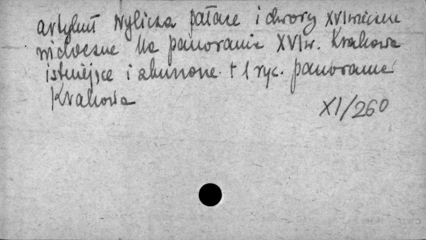 artykuł wylicza pałace i dwory XVI wieczne
widoczne na panoramie XVI w. Krakowa
istniejące i zburzone + 1 ryc. panorama
Krakowa
XI/260